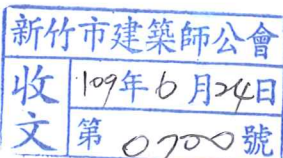 新竹市建築師公會
收文
109年6月24日
第0700號